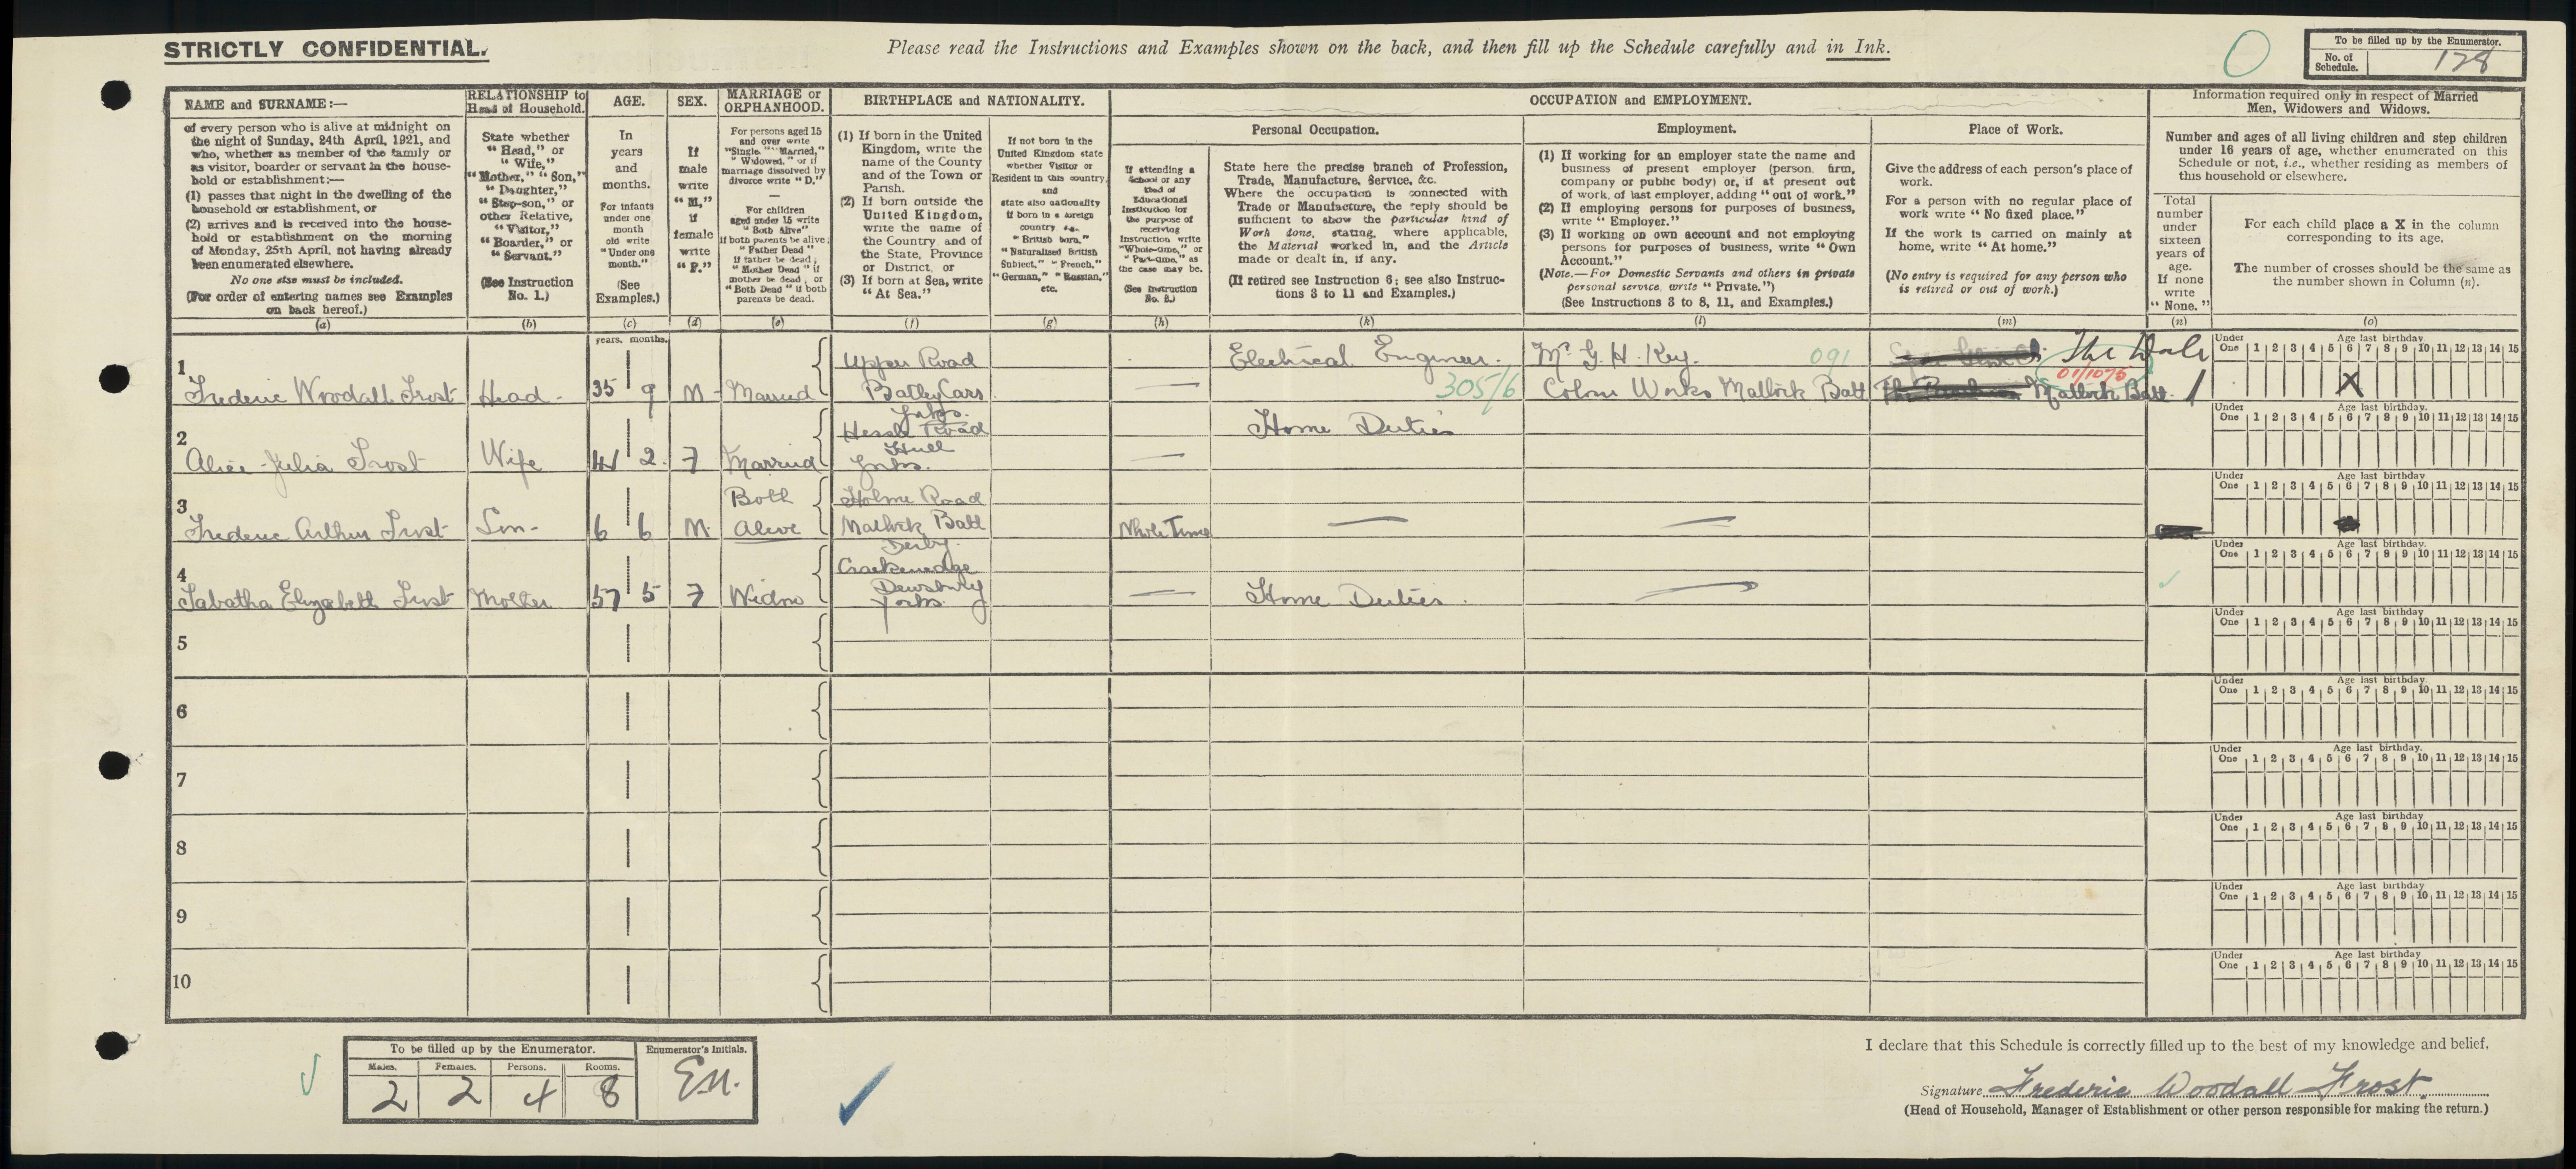 STRICTLY CONFIDENTIAL.
Please read the Instructions and Examples shown on the back, and then fill up the Schedule carefully and in Ink.
To be filled up by the Enumerator.
No. of Schedule. 178
NAME and SURNAME:—
of every person who is alive at midnight on
the night of Sunday, 24th April, 1921, and
who, whether as member of the family or
as visitor, boarder or servant in the house-
hold or establishment:—
(1) passes that night in the dwelling of the
household or establishment, or
(2) arrives and is received into the house-
hold or establishment on the morning
of Monday, 25th April, not having already
been enumerated elsewhere.
No one else must be included.
(For order of entering names see Examples
on back hereof.)
(a)
RELATIONSHIP to
Head of Household.
State whether
"Head," or
"Wife,"
"Mother," "Son,"
"Daughter,"
"Step-son," or
other Relative,
"Visitor,"
"Boarder," or
"Servant."
(See Instruction
No. 1.)
(b)
AGE.
In
years
and
months.
For infants
under one
month
old write
"Under one
month."
(See
Examples.)
(c)
SEX.
If
male
write
"M,"
if
female
write
"F."
(d)
MARRIAGE or
ORPHANHOOD.
For persons aged 15
and over write
"Single," "Married,"
"Widowed," or if
marriage dissolved by
divorce write "D."
—
For children
aged under 15 write
"Both Alive"
if both parents be alive,
"Father Dead"
if father be dead;
"Mother Dead" if
mother be dead; or
"Both Dead" if both
parents be dead.
(e)
BIRTHPLACE and NATIONALITY.
(1) If born in the United
Kingdom, write the
name of the County
and of the Town or
Parish.
(2) If born outside the
United Kingdom,
write the name of
the Country and of
the State, Province
or District, or
(3) If born at Sea, write
"At Sea."
(f)
If not born in the
United Kingdom state
whether Visitor or
Resident in this country
and
state also nationality
if born in a foreign
country as—
"British born,"
"Naturalised British
Subject," "French,"
"German," "Russian,"
etc.
(g)
OCCUPATION and EMPLOYMENT.
Personal Occupation.
If attending a
School or any
kind of
Educational
Institution for
the purpose of
receiving
Instruction write
"Whole-time," or
"Part-time," as
the case may be.
(See Instruction
No. 2.)
(h)
State here the precise branch of Profession,
Trade, Manufacture, Service, &c.
Where the occupation is connected with
Trade or Manufacture, the reply should be
sufficient to show the particular kind of
Work done, stating, where applicable,
the Material worked in, and the Article
made or dealt in, if any.
(If retired see Instruction 6; see also Instruc-
tions 3 to 11 and Examples.)
(k)
Employment.
(1) If working for an employer state the name and
business of present employer (person, firm,
company or public body) or, if at present out
of work, of last employer, adding "out of work."
(2) If employing persons for purposes of business,
write "Employer."
(3) If working on own account and not employing
persons for purposes of business, write "Own
Account."
(Note.—For Domestic Servants and others in private
personal service, write "Private.")
(See Instructions 3 to 8, 11, and Examples.)
(l)
Place of Work.
Give the address of each person's place of
work.
For a person with no regular place of
work write "No fixed place."
If the work is carried on mainly at
home, write "At home."
(No entry is required for any person who
is retired or out of work.)
(m)
Information required only in respect of Married
Men, Widowers and Widows.
Number and ages of all living children and step children
under 16 years of age, whether enumerated on this
Schedule or not, i.e., whether residing as members of
this household or elsewhere.
Total
number
under
sixteen
years of
age.
If none
write
"None."
(n)
For each child place a X in the column
corresponding to its age.
The number of crosses should be the same as
the number shown in Column (n).
(o)
years. months.
Under One Age last birthday 1 2 3 4 5 6 7 8 9 10 11 12 13 14 15
1 Upper Road Electrical Engineer. Mr G. H. Key. 091 The Dale
Frederic Woodall Frost Head - 35 9 M - Married Batley Carr — 305/6 Colour Works Matlock Bath 01/1075 Matlock Bath. 1 X
Yorks.
Under One Age last birthday. 1 2 3 4 5 6 7 8 9 10 11 12 13 14 15
2 Hessle Road Home Duties
Hull
Alice Julia Frost Wife 41 2. F Married Yorks. —
Under One Age last birthday 1 2 3 4 5 6 7 8 9 10 11 12 13 14 15
3 Both Holme Road
Frederic Arthur Frost Son - 6 6 M. Alive Matlock Bath Whole Time — —
Derby.
Under One Age last birthday. 1 2 3 4 5 6 7 8 9 10 11 12 13 14 15
4 Crackenedge
Dewsbury
Tabatha Elizabeth Frost Mother 57 5 F Widow Yorks. — Home Duties. —
Under One Age last birthday 1 2 3 4 5 6 7 8 9 10 11 12 13 14 15
5
Under One Age last birthday 1 2 3 4 5 6 7 8 9 10 11 12 13 14 15
6
Under One Age last birthday. 1 2 3 4 5 6 7 8 9 10 11 12 13 14 15
7
Under One Age last birthday 1 2 3 4 5 6 7 8 9 10 11 12 13 14 15
8
Under One Age last birthday 1 2 3 4 5 6 7 8 9 10 11 12 13 14 15
9
Under One Age last birthday 1 2 3 4 5 6 7 8 9 10 11 12 13 14 15
10
To be filled up by the Enumerator.
Males. Females. Persons. Rooms.
2 2 4 8
Enumerator's Initials.
I declare that this Schedule is correctly filled up to the best of my knowledge and belief.
Signature Frederic Woodall Frost.
(Head of Household, Manager of Establishment or other person responsible for making the return.)